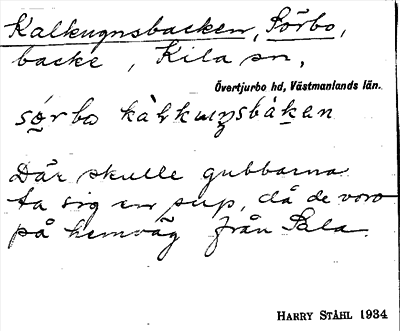 Kalkugnsbacken, Sörbo,
backe, Kila sn,
Övertjurbo hd, Västmanlands län.
Där skulle gubbarna
ta sig en sup, då de voro
på hemväg från Sala.
HARRY STÅHL 1934